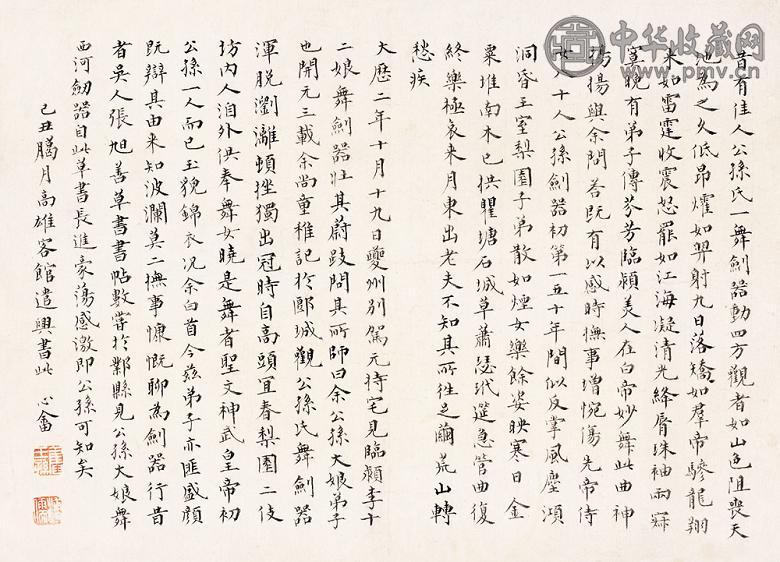 中华收藏网
www.pmv.cn
昔有佳人公孫氏一舞劍器動四方觀者如山色阻喪天
地為之久低昂㸌如羿射九日落矯如羣帝驂龍翔
来如雷霆收震怒罷如江海凝清光絳脣珠袖兩寂
寞晚有弟子傳芬芳臨潁美人在白帝妙舞此曲神
揚揚與余問答既有以感時撫事增惋傷先帝侍
女八十人公孫劍器初第一五十年間似反掌風塵澒
洞昏王室梨園子弟散如煙女樂餘姿映寒日金
粟堆南木已拱瞿塘石城草蕭瑟玳筵急管曲復
終樂極哀来月東出老夫不知其所往足繭荒山轉
愁疾
大歷二年十月十九日夔州別駕元持宅見臨潁李十
二娘舞劍器壯其蔚跂問其所師曰余公孫大娘弟子
也開元三載余尚童稚記於郾城觀公孫氏舞劍器
渾脫瀏灕頓挫獨出冠時自高頭宜春梨園二伎
坊內人洎外供奉舞女曉是舞者聖文神武皇帝初
公孫一人而已玉貌錦衣況余白首今茲弟子亦匪盛顏
既辯其由来知波瀾莫二撫事慷慨聊為劍器行昔
者吳人張旭善草書書帖數嘗於鄴縣見公孫大娘舞
西河劒器自此草書長進豪蕩感激即公孫可知矣
己丑臈月高雄客館遣興書此 心畬